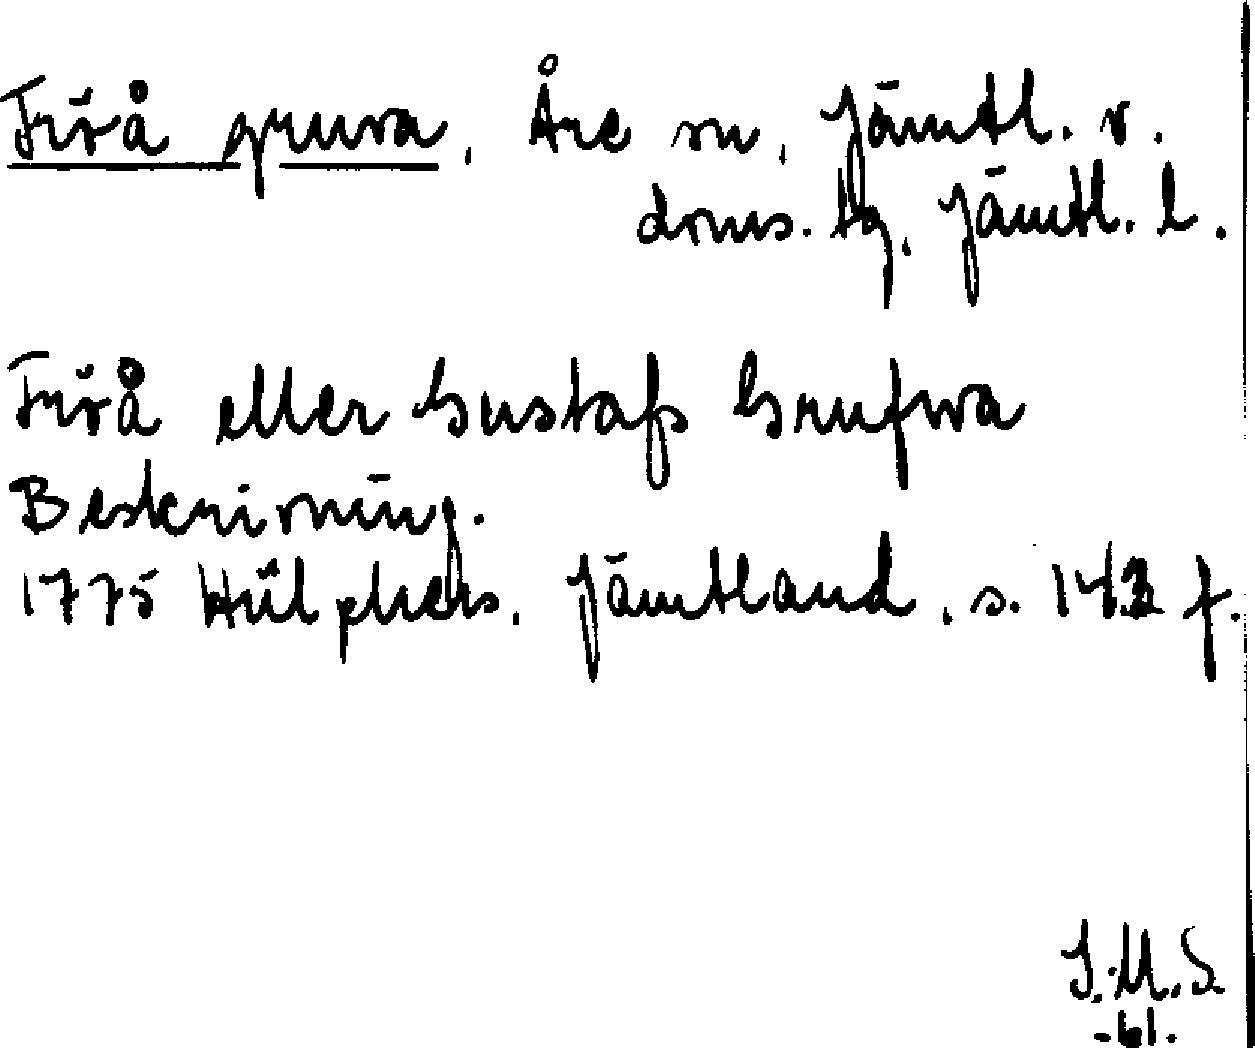 Fröå gruva, Åre sn, Jämtl. v.
doms. tg. Jämtl. l.
Fröå eller Gustafs Grufwa
Beskrivning.
1775 Hülphers. Jämtland. s. 142 f.
I.M.S.
-61.